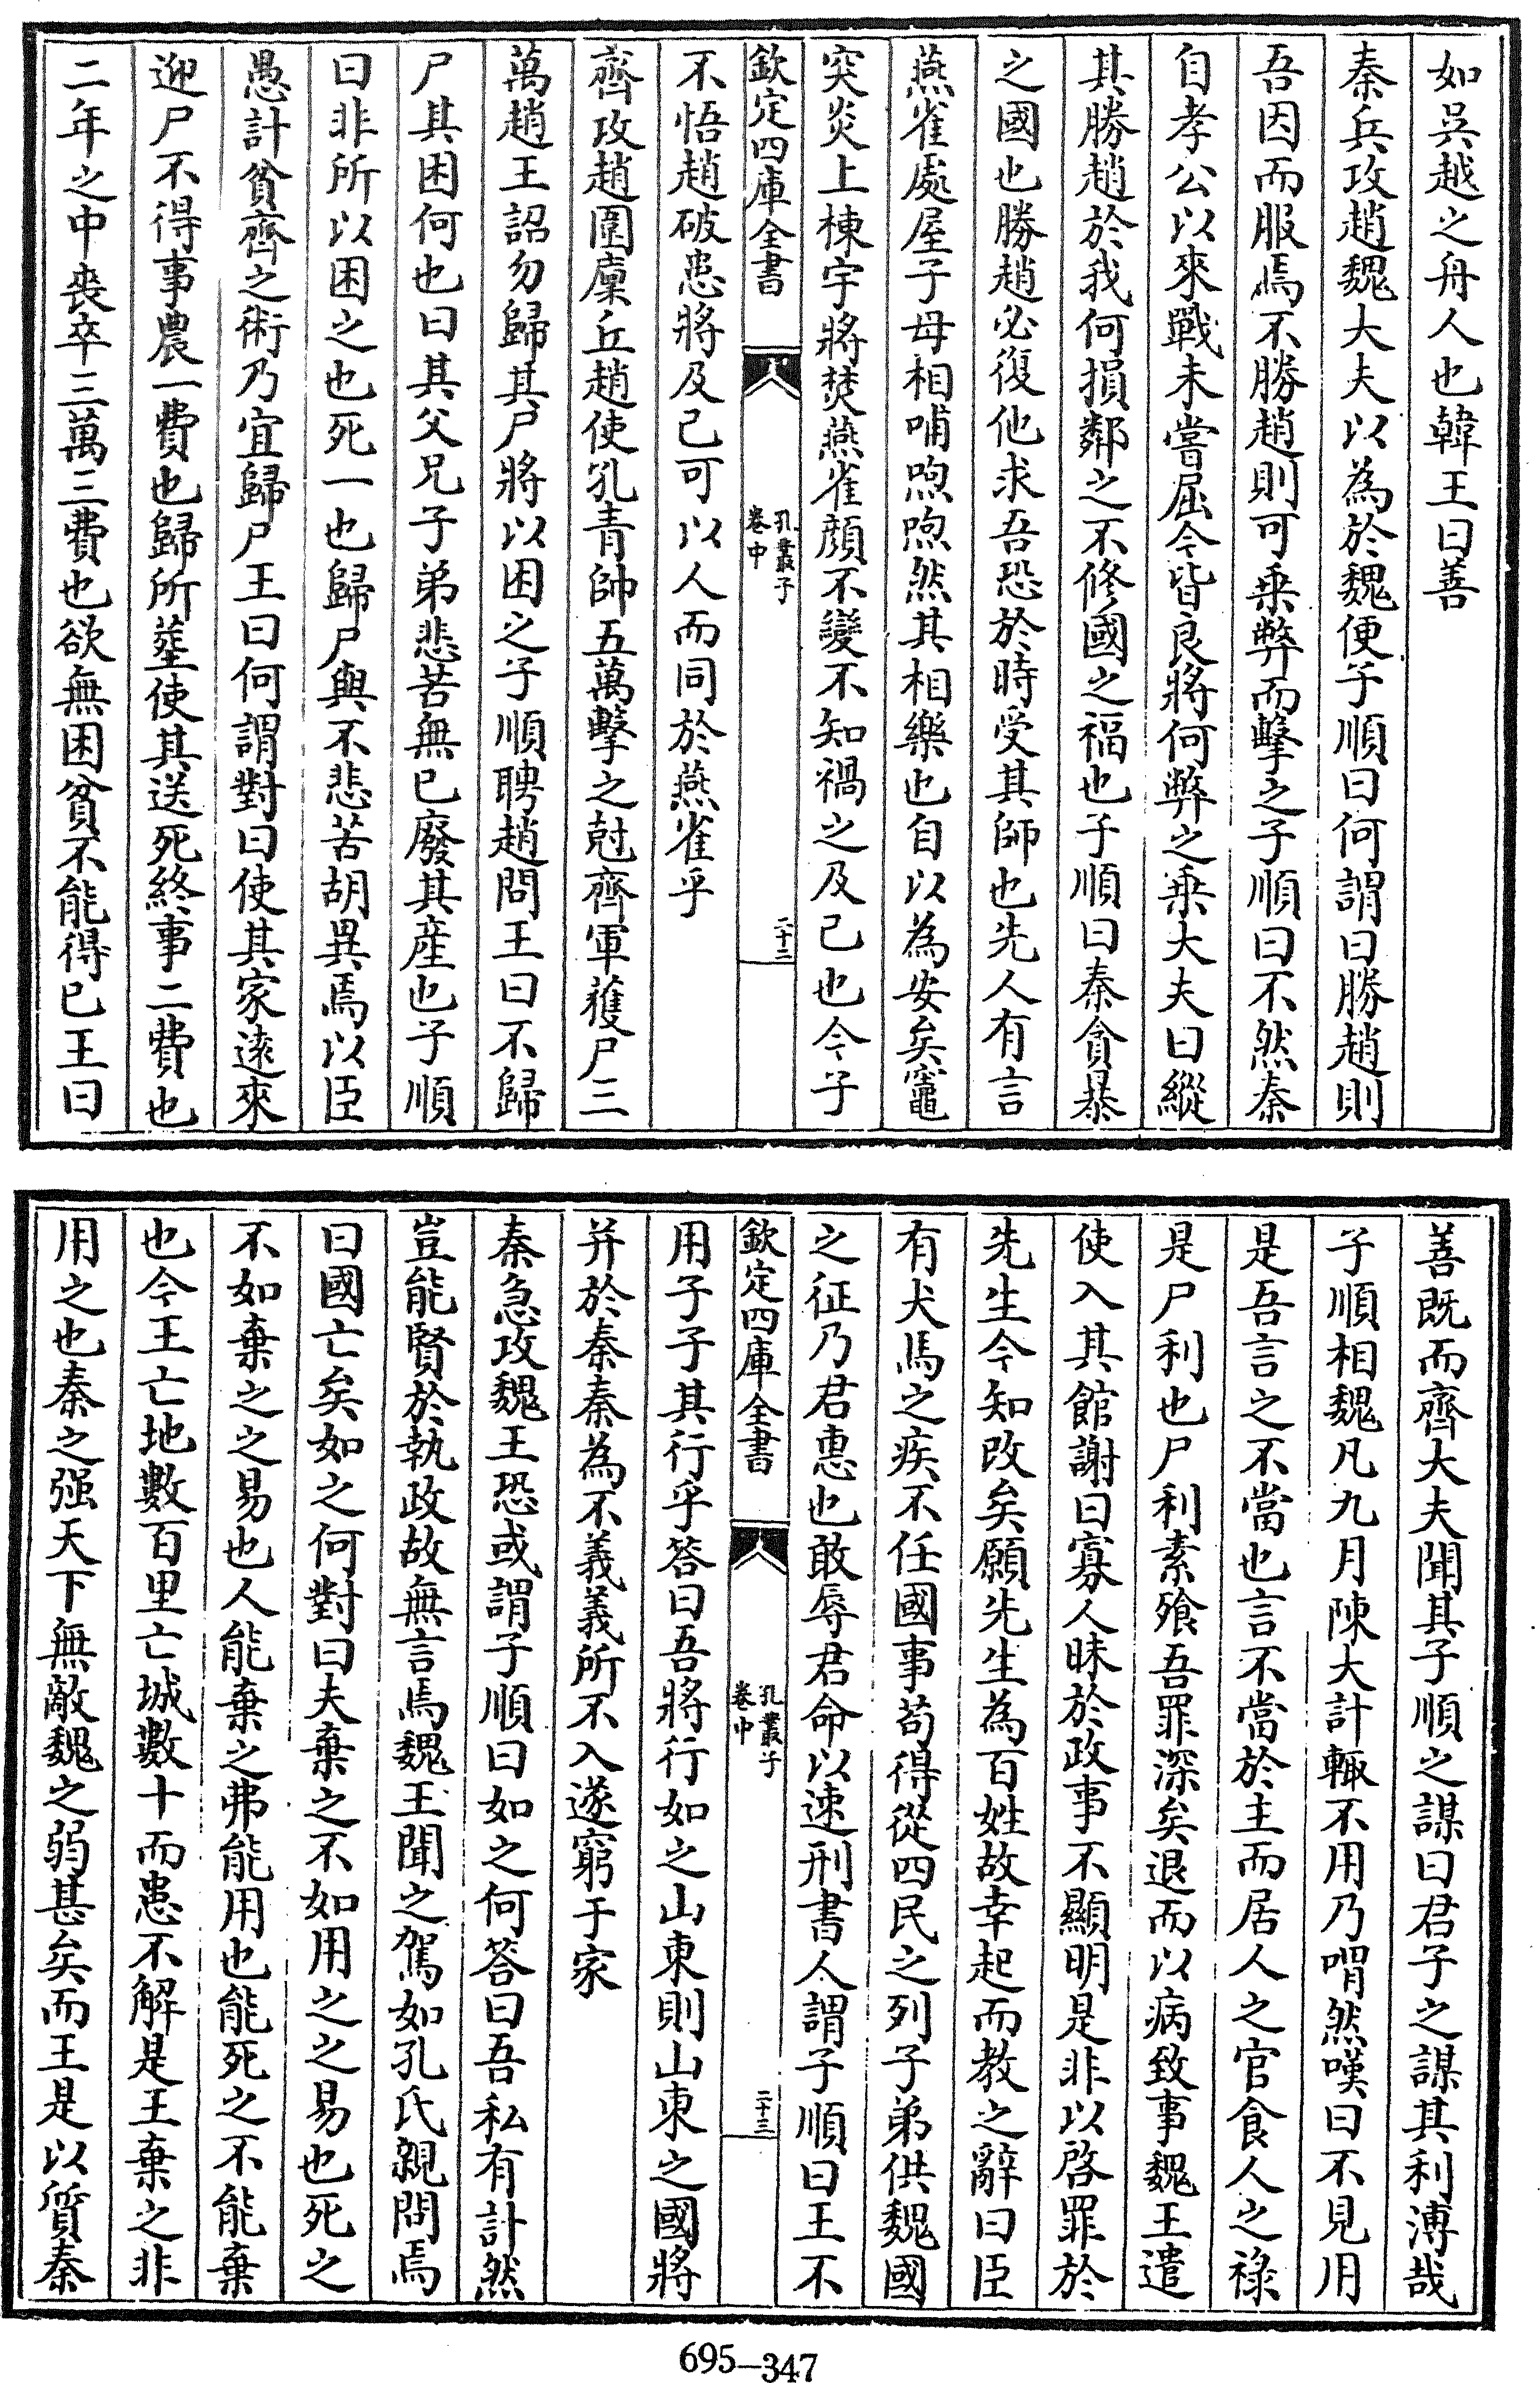 如吳越之舟人也韓王曰善
秦兵攻趙魏大夫以為於魏便子順曰何謂曰勝趙則
吾因而服焉不勝趙則可乗弊而擊之子順曰不然秦
自孝公以來戰未嘗屈今皆良將何弊之乗大夫曰縱
其勝趙於我何損鄰之不修國之福也子順曰秦貪暴
之國也勝趙必復他求吾恐於時受其師也先人有言
燕雀處屋子母相哺喣喣然其相樂也自以為安矣竈
突炎上棟宇將焚燕雀顔不變不知禍之及己也今子
欽定四庫全書
孔叢子
卷中
二十二
不悟趙破患將及己可以人而同於燕雀乎
齊攻趙圍廩丘趙使孔青帥五萬擊之尅齊軍獲尸三
萬趙王詔勿歸其尸將以困之子順聘趙問王曰不歸
尸其困何也曰其父兄子弟悲苦無已廢其産也子順
曰非所以困之也死一也歸尸與不悲苦胡異焉以臣
愚計貧齊之術乃宜歸尸王曰何謂對曰使其家逺來
迎尸不得事農一費也歸所塟使其送死終事二費也
二年之中喪卒三萬三費也欲無困貧不能得已王曰
善既而齊大夫聞其子順之謀曰君子之謀其利溥哉
子順相魏凡九月陳大計輙不用乃喟然嘆曰不見用
是吾言之不當也言不當於主而居人之官食人之祿
是尸利也尸利素飱吾罪深矣退而以病致事魏王遣
使入其館謝曰寡人昧於政事不顯明是非以啓罪於
先生今知改矣願先生為百姓故幸起而教之辭曰臣
有犬馬之疾不任國事苟得從四民之列子弟供魏國
之征乃君惠也敢辱君命以速刑書人謂子順曰王不
欽定四庫全書
孔叢子
卷中
二十三
用子子其行乎答曰吾將行如之山東則山東之國將
并於秦秦為不義義所不入遂窮于家
秦急攻魏王恐或謂子順曰如之何答曰吾私有計然
豈能賢於執政故無言焉魏王聞之駕如孔氏親問焉
曰國亡矣如之何對曰夫棄之不如用之之易也死之
不如棄之之易也人能棄之弗能用也能死之不能棄
也今王亡地數百里亡城數十而患不解是王棄之非
用之也秦之强天下無敵魏之弱甚矣而王是以質秦
695—347